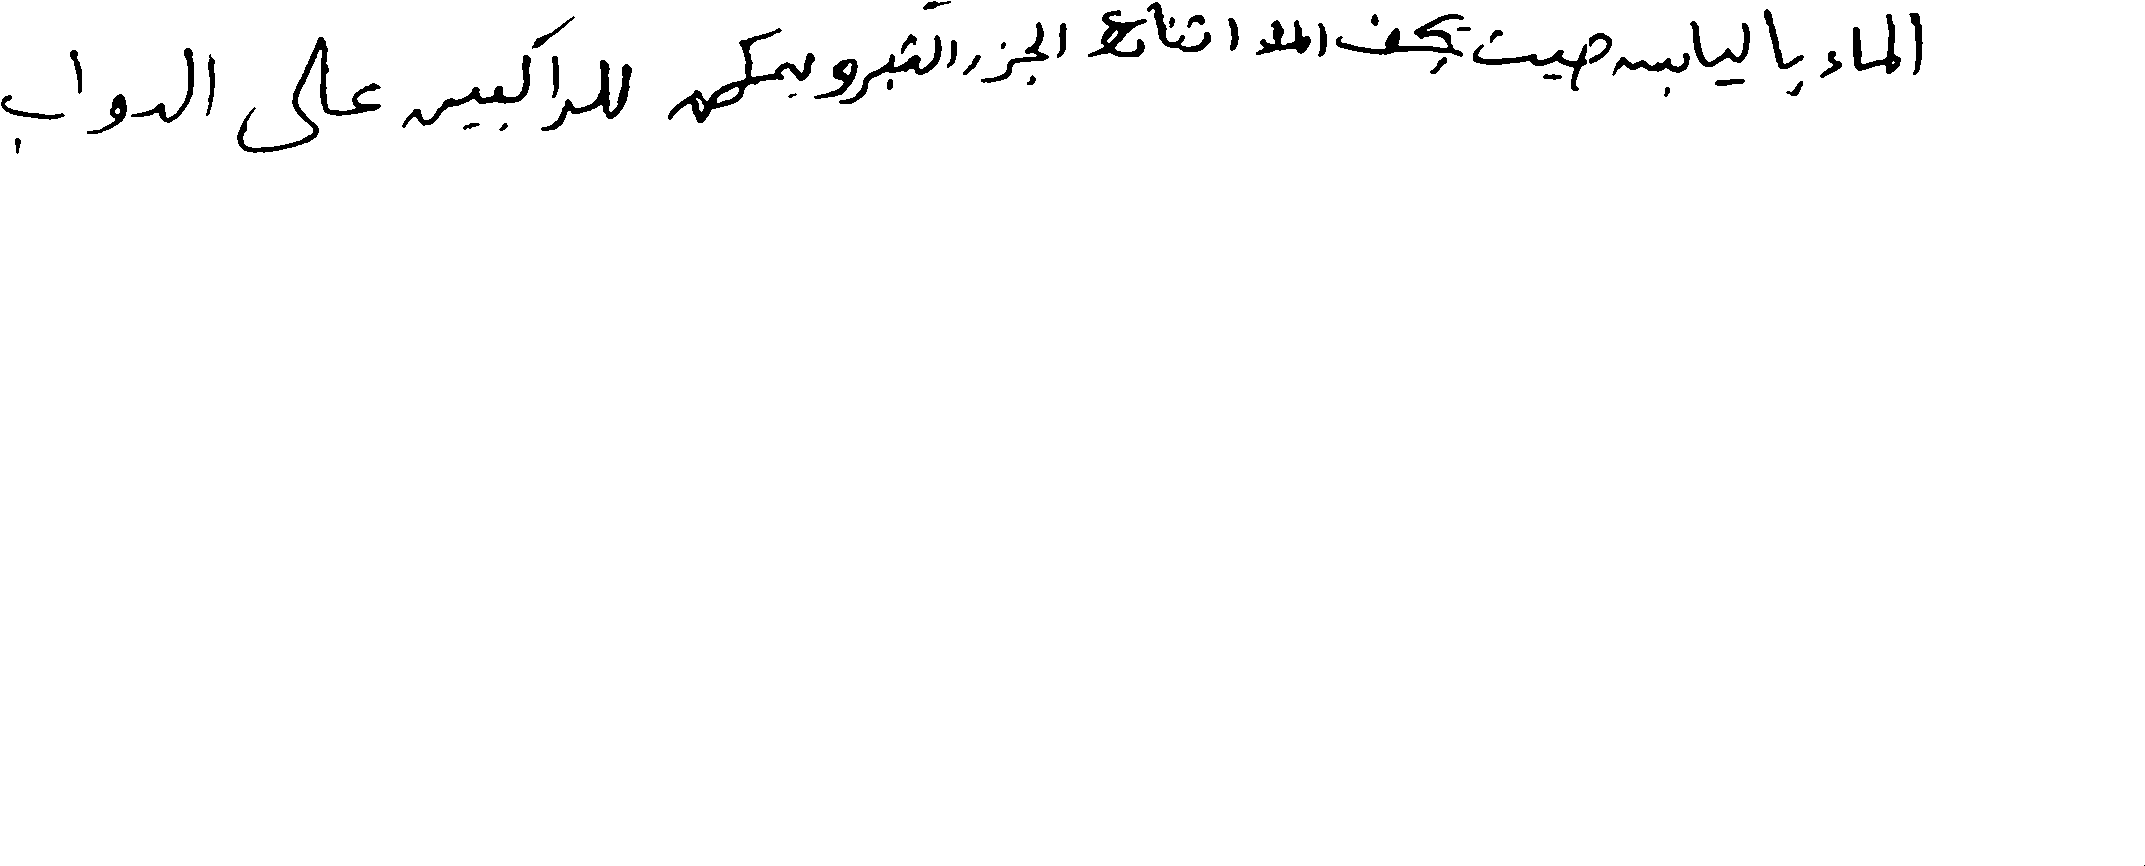 الماء باليابس حيث يجف الماء اثناء الجزر القبر ويمكن للراكبين على الدواب